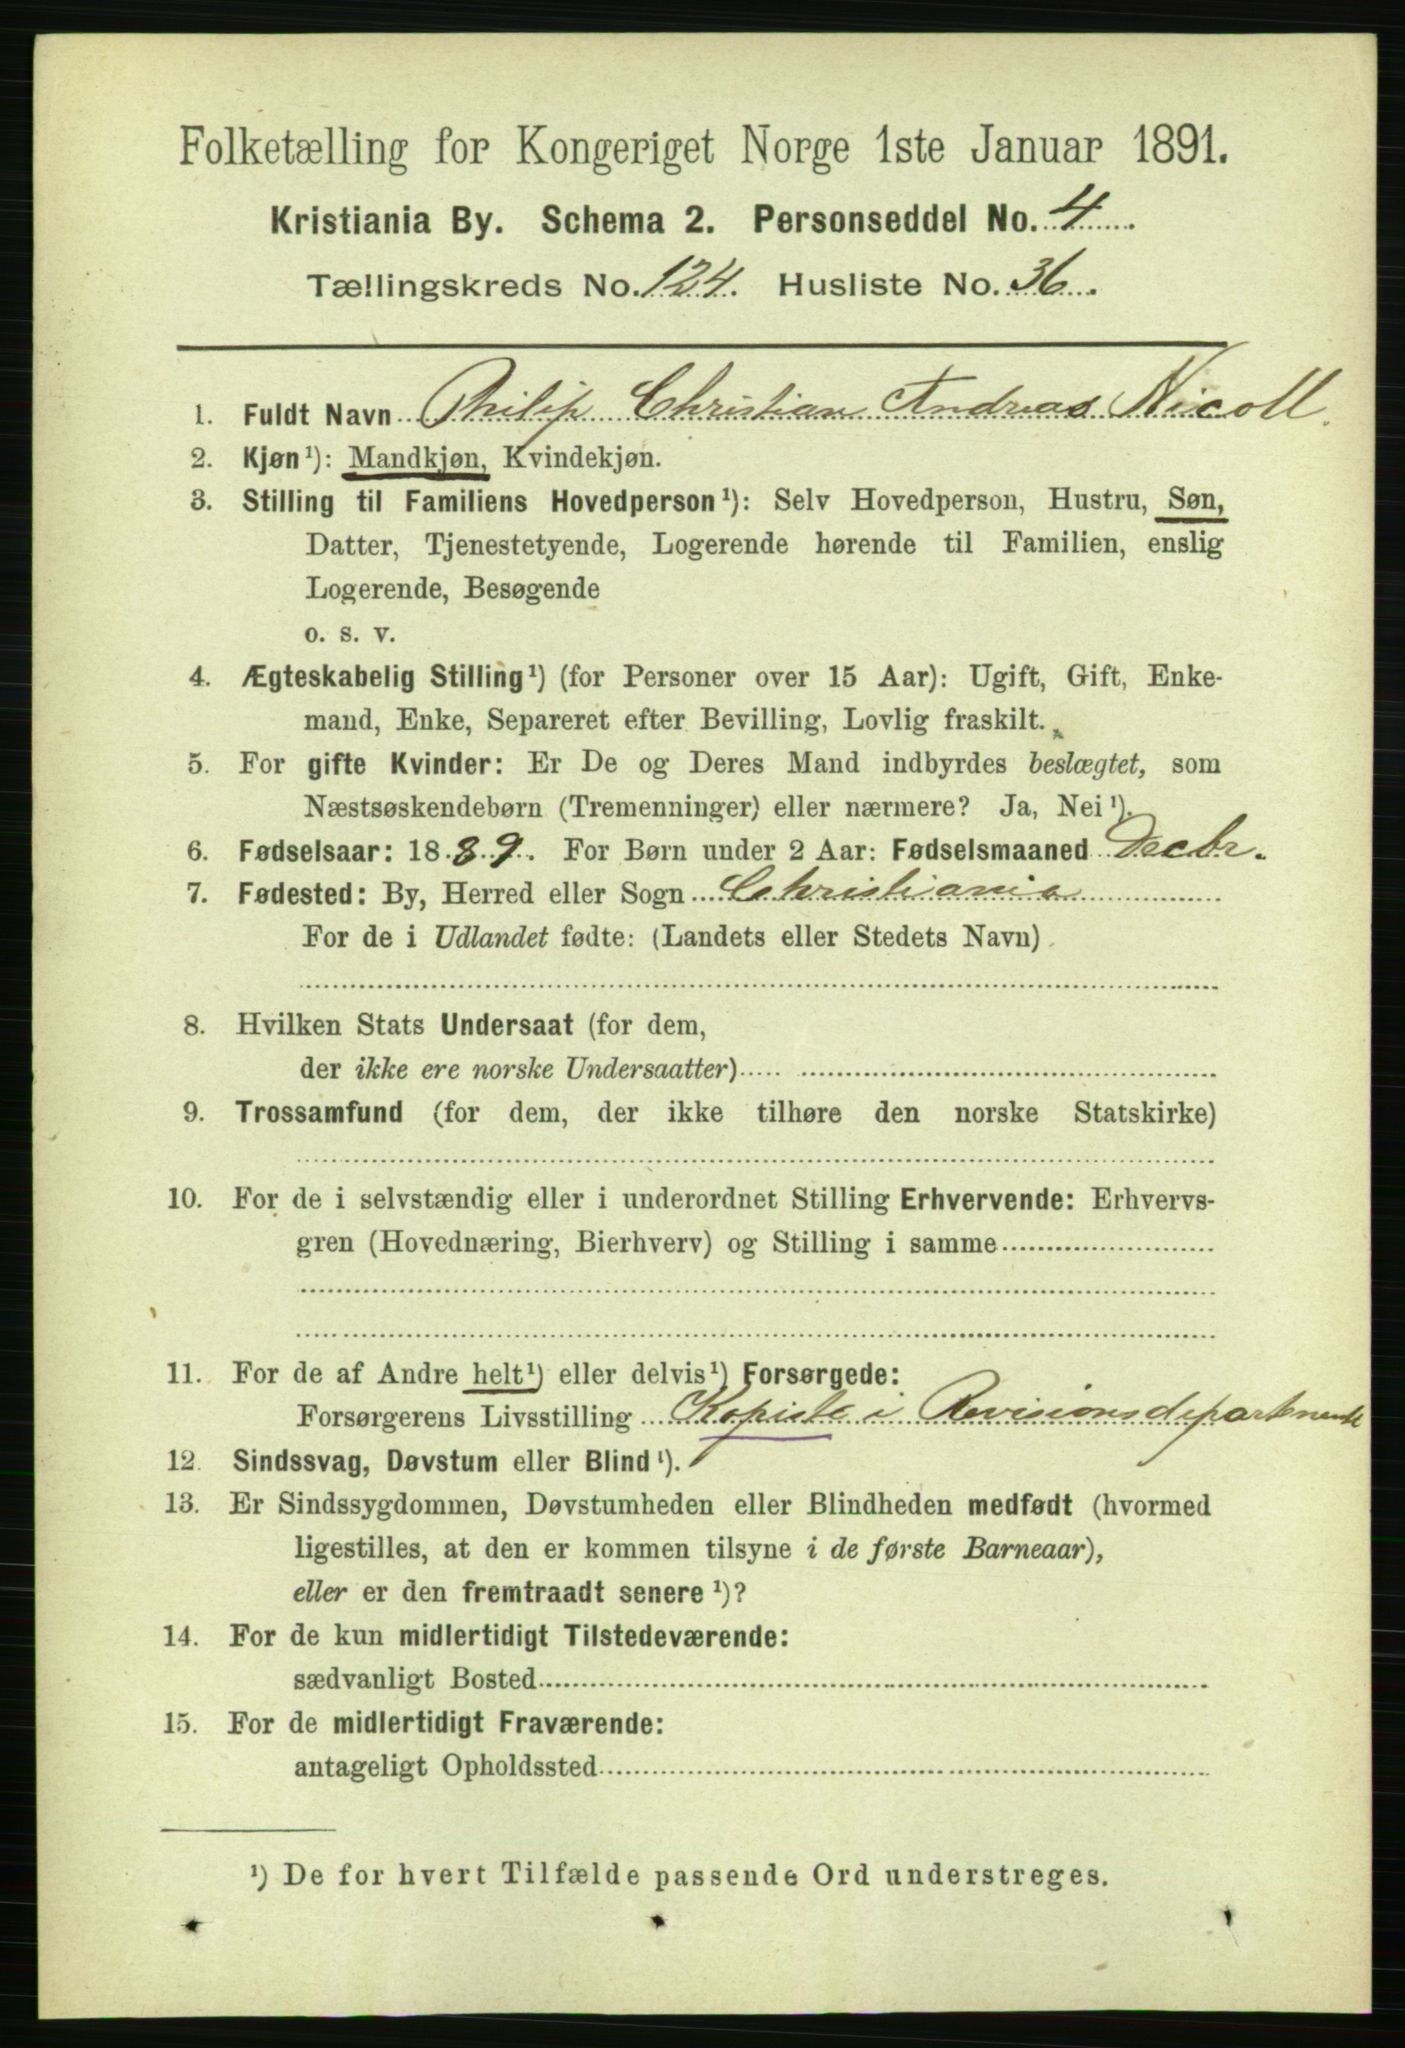 Folketælling for Kongeriget Norge 1ste Januar 1891.
Kristiania By. Schema 2. Personseddel No. 4
Tællingskreds No. 124. Husliste No. 36.
1. Fuldt Navn Philip Christian Andreas Nicoll.
2. Kjøn¹): Mandkjøn, Kvindekjøn.
3. Stilling til Familiens Hovedperson¹): Selv Hovedperson, Hustru, Søn,
Datter, Tjenestetyende, Logerende hørende til Familien, enslig
Logerende, Besøgende
o. s. v.
4. Ægteskabelig Stilling¹) (for Personer over 15 Aar): Ugift, Gift, Enke-
mand, Enke, Separeret efter Bevilling, Lovlig fraskilt.
5. For gifte Kvinder: Er De og Deres Mand indbyrdes beslægtet, som
Næstsøskendebørn (Tremenninger) eller nærmere? Ja, Nei¹).
6. Fødselsaar: 1889. For Børn under 2 Aar: Fødselsmaaned Decbr.
7. Fødested: By, Herred eller Sogn Christiania
For de i Udlandet fødte: (Landets eller Stedets Navn)
8. Hvilken Stats Undersaat (for dem,
der ikke ere norske Undersaatter)
9. Trossamfund (for dem, der ikke tilhøre den norske Statskirke)
10. For de i selvstændig eller i underordnet Stilling Erhvervende: Erhvervs-
gren (Hovednæring, Bierhverv) og Stilling i samme
11. For de af Andre helt¹) eller delvis¹) Forsørgede:
Forsørgerens Livsstilling Kopiste i Revisionsdepartmente
12. Sindssvag, Døvstum eller Blind¹).
13. Er Sindssygdommen, Døvstumheden eller Blindheden medfødt (hvormed
ligestilles, at den er kommen tilsyne i de første Barneaar),
eller er den fremtraadt senere¹)?
14. For de kun midlertidigt Tilstedeværende:
sædvanligt Bosted
15. For de midlertidigt Fraværende:
antageligt Opholdssted
¹) De for hvert Tilfælde passende Ord understreges.